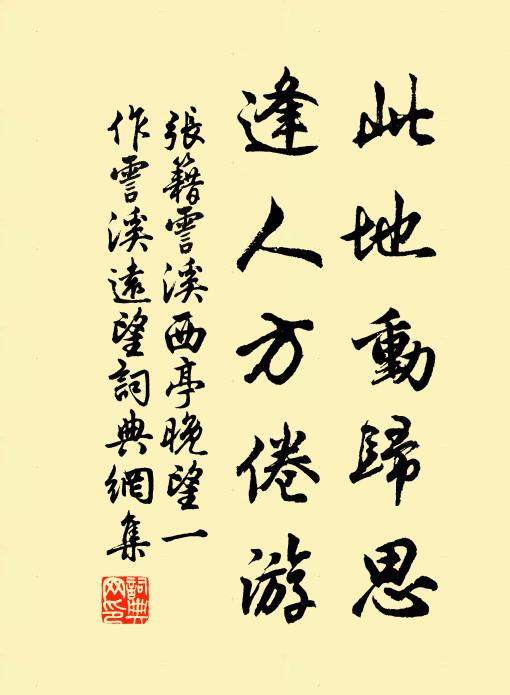 此地動歸思
逢人方倦游
張籍霅溪西亭晚望一
作霅溪遠望詞典網集
詞典